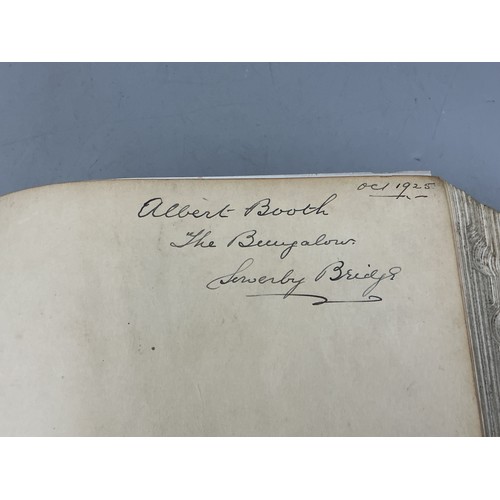 Oct 1925
Albert Booth
"The Bungalow.
Sowerby Bridge